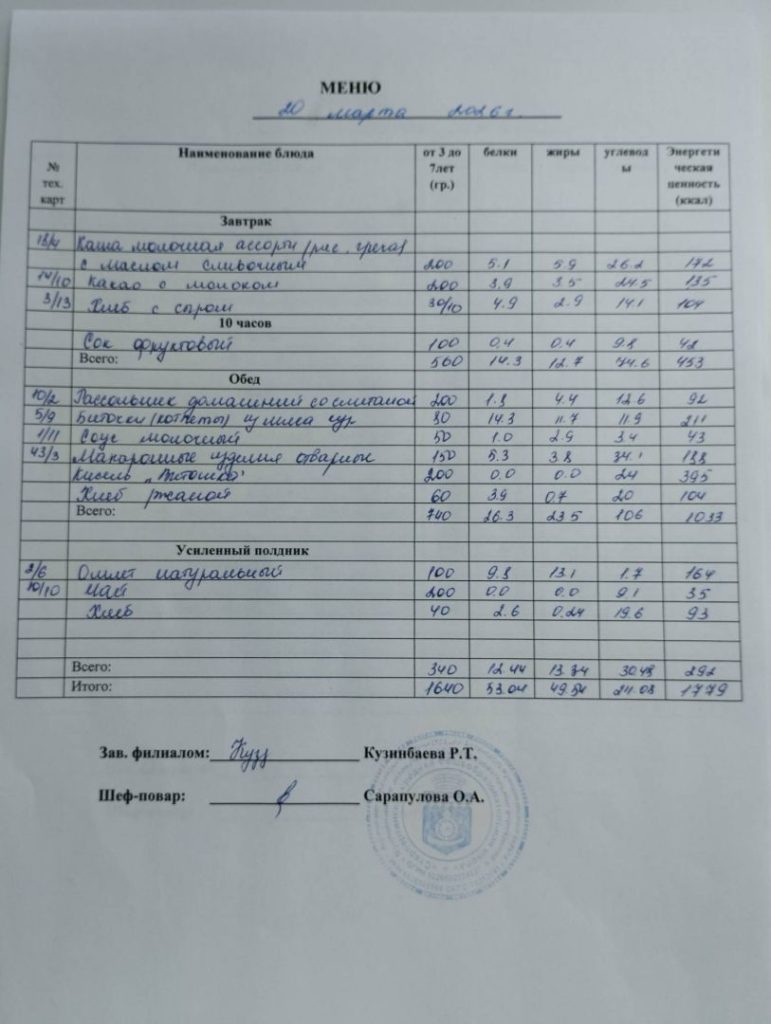 МЕНЮ
20 марта 2026 г.
№ тех. карт Наименование блюда от 3 до 7лет (гр.) белки жиры углеводы Энергетическая ценность (ккал)
Завтрак
Каша молочная ассорти (рис, греча)
с маслом сливочным 200 5.1 5.9 26.2 172
14/10 Какао с молоком 200 3.9 3.5 24.5 135
3/13 Хлеб с сыром 30/10 4.9 2.9 14.1 104
10 часов
Сок фруктовый 100 0.4 0.4 9.8 42
Всего: 560 14.3 12.7 74.6 453
Обед
10/2 Рассольник домашний со сметаной 200 1.8 4.4 12.6 92
5/9 Биточки (котлеты) из мяса кур 80 14.3 11.7 11.9 211
1/11 Соус молочный 50 1.0 2.9 3.4 43
43/3 Макаронные изделия отварн 150 5.3 3.8 34.1 188
Кисель 200 0.0 0.0 24 395
Хлеб ржаной 60 3.9 0.7 20 104
Всего: 740 26.3 23.5 106 1033
Усиленный полдник
2/6 Омлет натуральный 100 9.8 13.1 1.7 164
10/10 Чай 200 0.0 0.0 9.1 35
Хлеб 40 2.6 0.24 19.6 93
Всего: 340 12.44 13.34 30.43 292
Итого: 1640 53.04 49.54 211.03 1779
Зав. филиалом: Куз Кузинбаева Р.Т.
Шеф-повар: Сарапулова О.А.